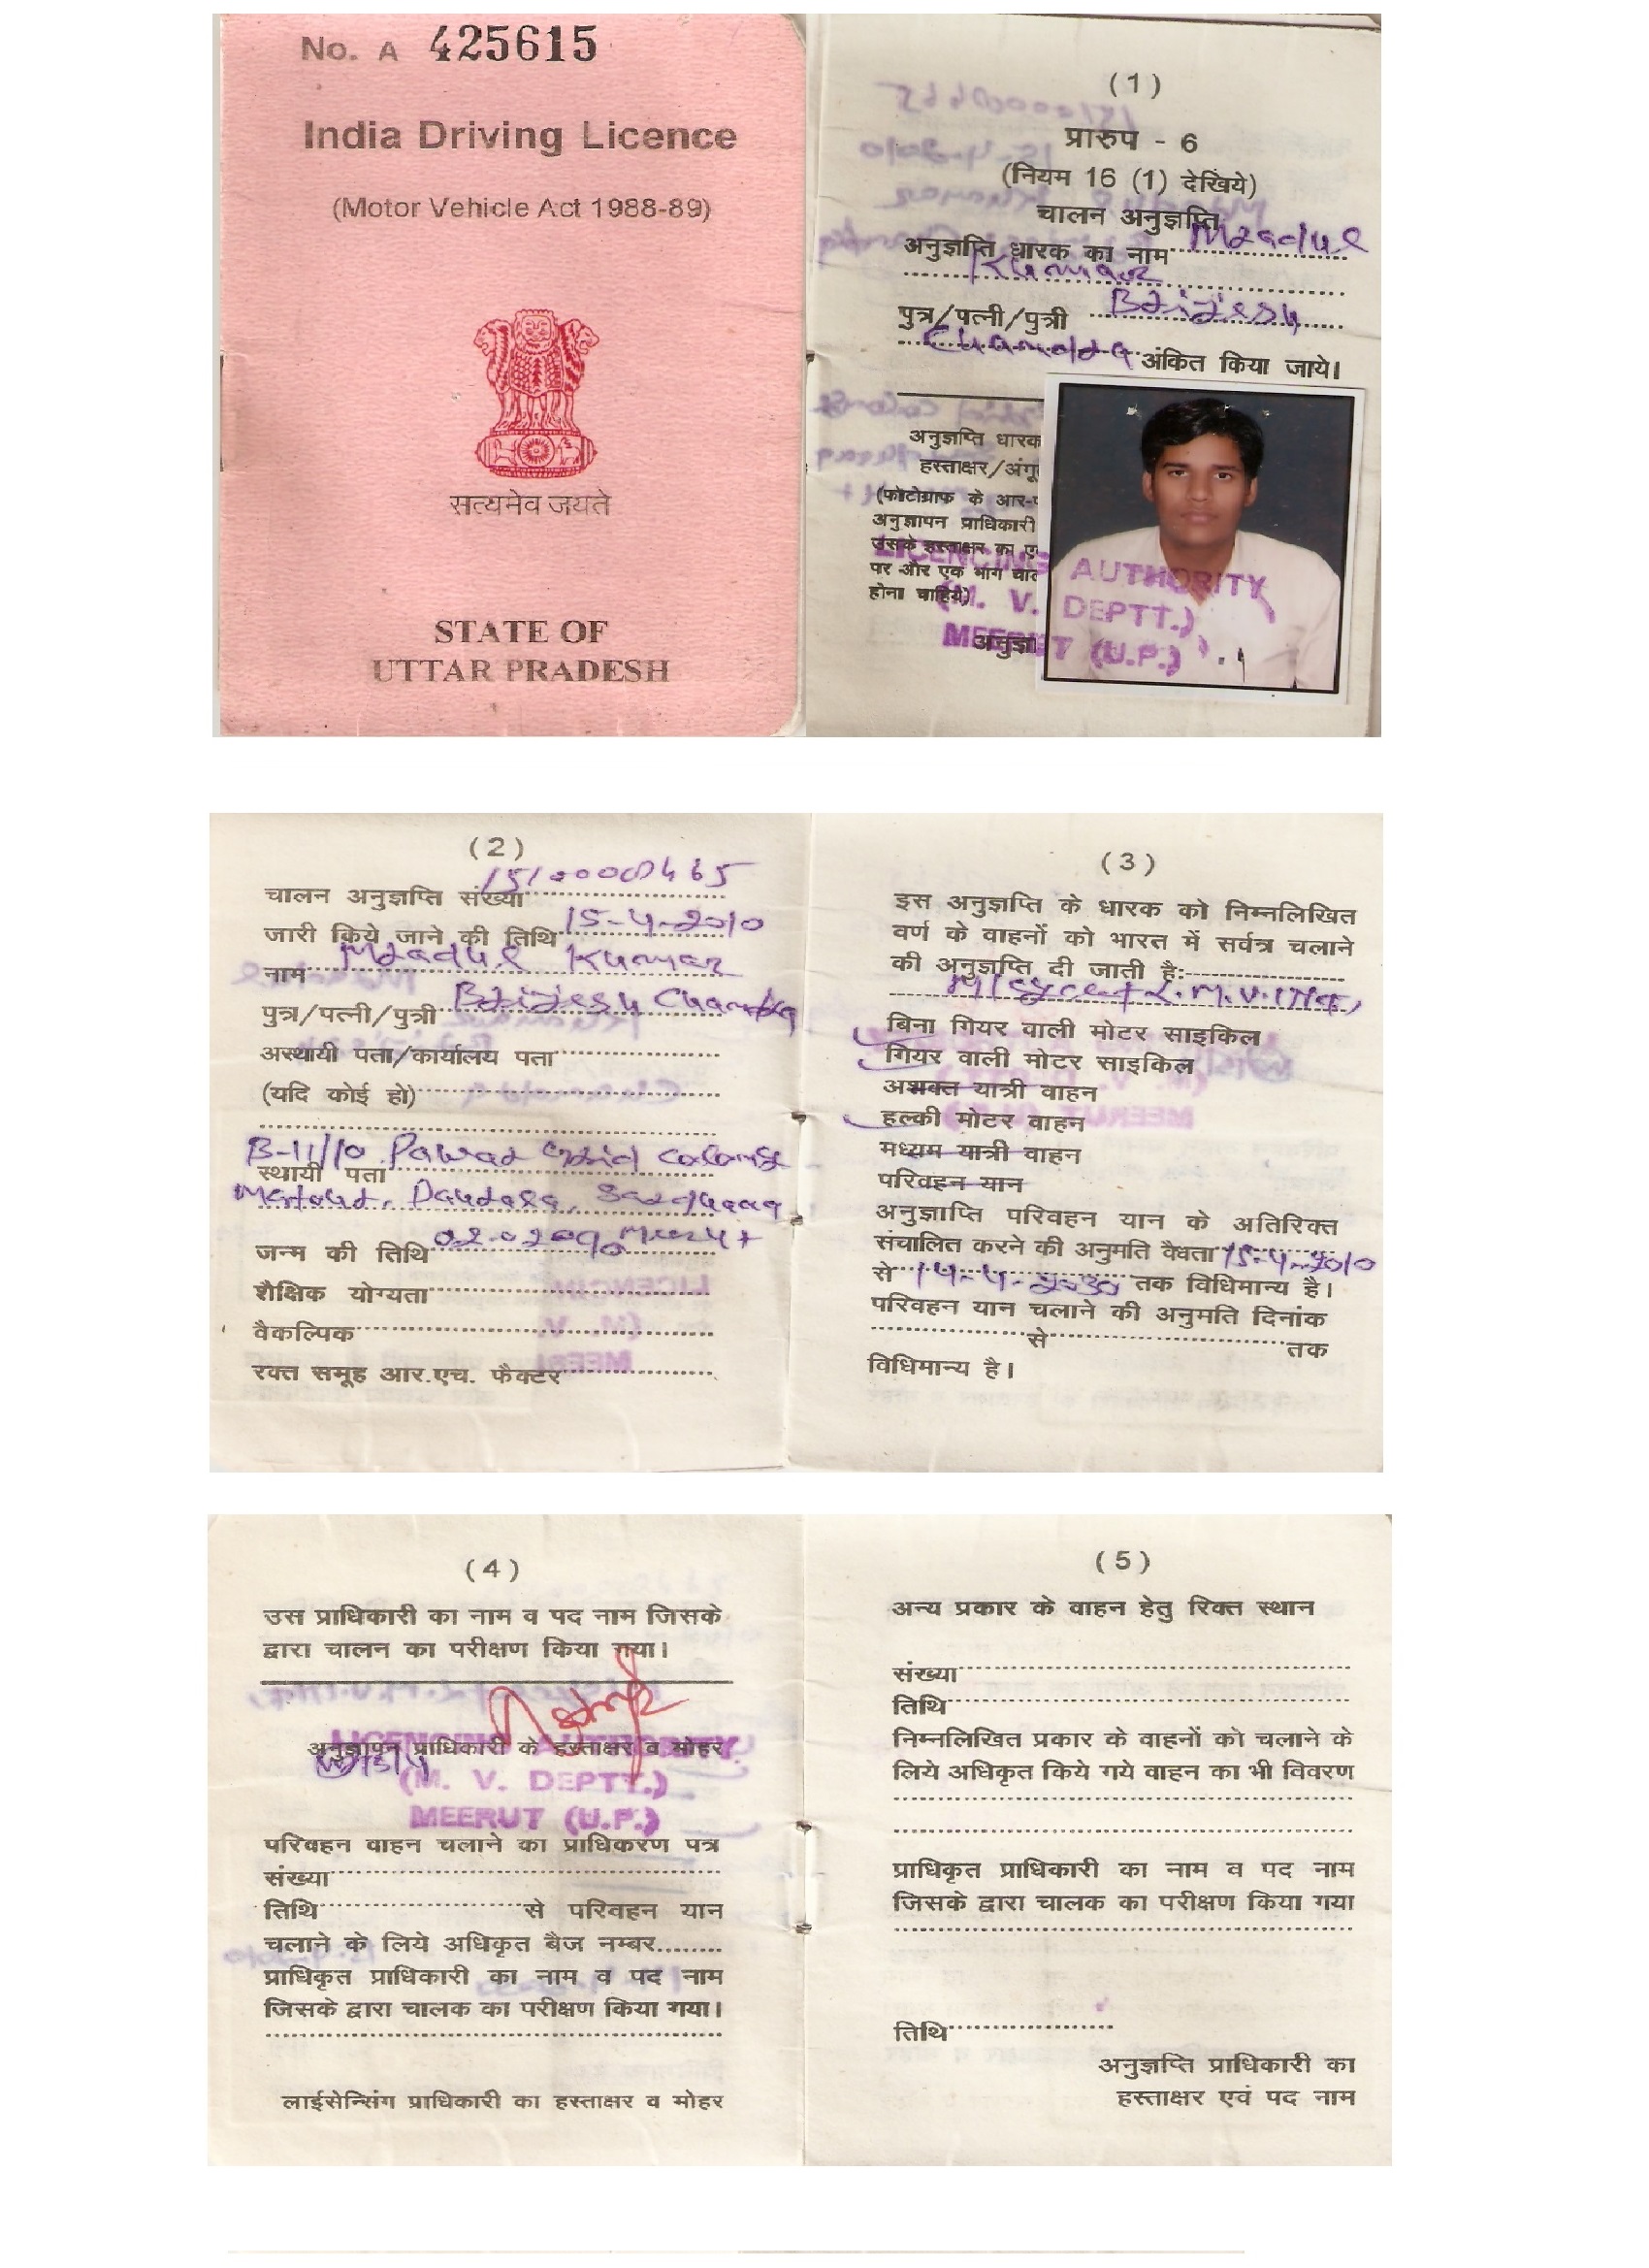 No. A 425615
India Driving Licence
(Motor Vehicle Act 1988-89)
सत्यमेव जयते
STATE OF
UTTAR PRADESH
(1)
प्रारुप - 6
(नियम 16 (1) देखिये)
चालन अनुज्ञप्ति
अनुज्ञप्ति धारक का नाम
Kumar
पुत्र/पत्नी/पुत्री
अंकित किया जाये।
अनुज्ञप्ति धारक
हस्ताक्षर/अंगू
(फोटोग्राफ के आर-प
अनुज्ञापन प्राधिकारी
उसके हस्ताक्षर का ए
पर और एक भाग चाल
होना चाहिये)
LICENCING AUTHORITY
(M. V. DEPTT.)
MEERUT (U.P.)
अनुज्ञा
(2)
चालन अनुज्ञप्ति संख्या
जारी किये जाने की तिथि 15-4-2010
नाम Kumar
पुत्र/पत्नी/पुत्री
अस्थायी पता/कार्यालय पता
(यदि कोई हो)
B-11/10
स्थायी पता
जन्म की तिथि
शैक्षिक योग्यता
वैकल्पिक
रक्त समूह आर.एच. फैक्टर
(3)
इस अनुज्ञप्ति के धारक को निम्नलिखित
वर्ण के वाहनों को भारत में सर्वत्र चलाने
की अनुज्ञप्ति दी जाती है:-
बिना गियर वाली मोटर साइकिल
गियर वाली मोटर साइकिल
अशक्त यात्री वाहन
हल्की मोटर वाहन
मध्यम यात्री वाहन
परिवहन यान
अनुज्ञाप्ति परिवहन यान के अतिरिक्त
संचालित करने की अनुमति वैधता 15-4-2010
से 14-4-2030 तक विधिमान्य है।
परिवहन यान चलाने की अनुमति दिनांक
से तक
विधिमान्य है।
(4)
उस प्राधिकारी का नाम व पद नाम जिसके
द्वारा चालन का परीक्षण किया गया।
अनुज्ञापन प्राधिकारी के हस्ताक्षर व मोहर
LICENCING AUTHORITY
(M. V. DEPTT.)
MEERUT (U.P.)
परिवहन वाहन चलाने का प्राधिकरण पत्र
संख्या
तिथि से परिवहन यान
चलाने के लिये अधिकृत बैज नम्बर.........
प्राधिकृत प्राधिकारी का नाम व पद नाम
जिसके द्वारा चालक का परीक्षण किया गया।
लाईसेन्सिंग प्राधिकारी का हस्ताक्षर व मोहर
(5)
अन्य प्रकार के वाहन हेतु रिक्त स्थान
संख्या
तिथि
निम्नलिखित प्रकार के वाहनों को चलाने के
लिये अधिकृत किये गये वाहन का भी विवरण
प्राधिकृत प्राधिकारी का नाम व पद नाम
जिसके द्वारा चालक का परीक्षण किया गया
तिथि
अनुज्ञप्ति प्राधिकारी का
हस्ताक्षर एवं पद नाम